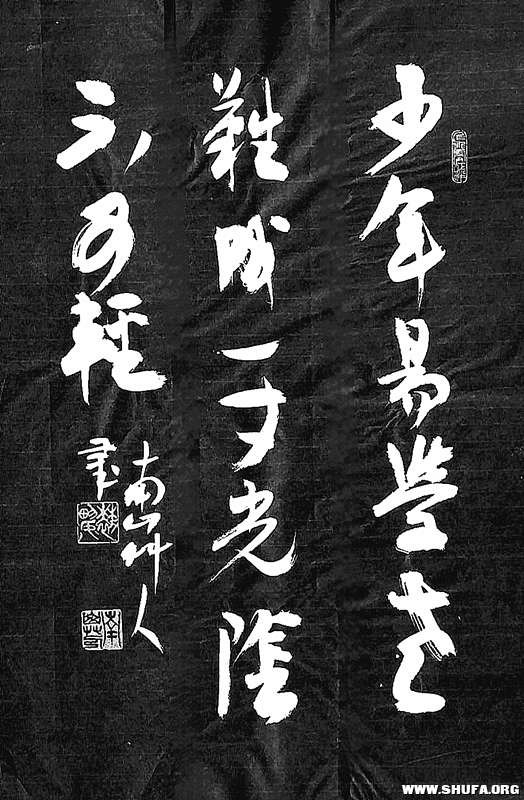 少年易學老
難成一寸光陰
不可輕
南山人
書
WWW.SHUFA.ORG